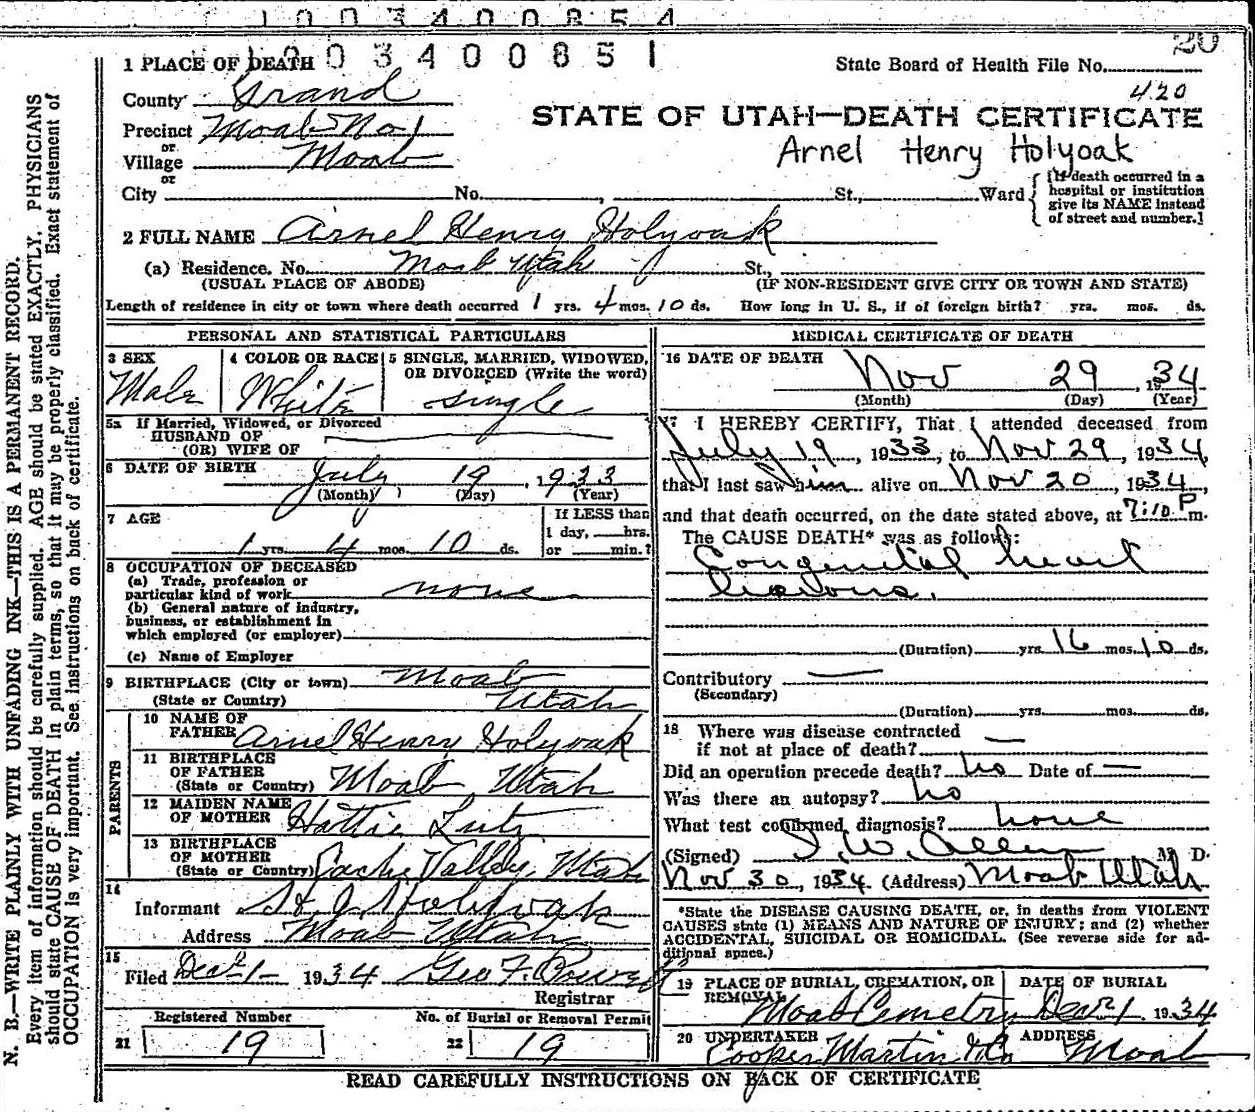 1003400854
1003400851
20
1 PLACE OF DEATH
State Board of Health File No.
420
County Grand
STATE OF UTAH—DEATH CERTIFICATE
Precinct Moab No 1
Arnel Henry Holyoak
or
Village Moab
or
City No. , St., Ward
[If death occurred in a
hospital or institution
give its NAME instead
of street and number.]
2 FULL NAME Arnel Henry Holyoak
(a) Residence. No. Moab Utah St.,
(USUAL PLACE OF ABODE) (IF NON-RESIDENT GIVE CITY OR TOWN AND STATE)
Length of residence in city or town where death occurred 1 yrs. 4 mos. 10 ds. How long in U. S., if of foreign birth? yrs. mos. ds.
PERSONAL AND STATISTICAL PARTICULARS
3 SEX
Male
4 COLOR OR RACE
White
5 SINGLE, MARRIED, WIDOWED,
OR DIVORCED (Write the word)
single
5a If Married, Widowed, or Divorced
HUSBAND OF
(OR) WIFE OF
6 DATE OF BIRTH
July 19, 1933
(Month) (Day) (Year)
7 AGE
1 yrs. 4 mos. 10 ds.
If LESS than
1 day, hrs.
or min.?
8 OCCUPATION OF DECEASED
(a) Trade, profession or
particular kind of work none
(b) General nature of industry,
business, or establishment in
which employed (or employer)
(c) Name of Employer
9 BIRTHPLACE (City or town) Moab
(State or Country) Utah
PARENTS
10 NAME OF
FATHER Arnel Henry Holyoak
11 BIRTHPLACE
OF FATHER
(State or Country) Moab Utah
12 MAIDEN NAME
OF MOTHER Hattie Lutz
13 BIRTHPLACE
OF MOTHER
(State or Country) Cache Valley, Utah
14
Informant Holyoak
Address Moab Utah
15
Filed Dec 1 1934 Geo F. Powell
Registrar
Registered Number No. of Burial or Removal Permit
21 19 22 19
MEDICAL CERTIFICATE OF DEATH
16 DATE OF DEATH
Nov 29, 1934
(Month) (Day) (Year)
17 I HEREBY CERTIFY, That I attended deceased from
July 19, 1933, to Nov 29, 1934,
that I last saw him alive on Nov 20, 1934,
and that death occurred, on the date stated above, at 7:10 P m.
The CAUSE DEATH* was as follows:
Congenital heart
(Duration) yrs. 16 mos. 10 ds.
Contributory —
(Secondary)
(Duration) yrs. mos. ds.
18 Where was disease contracted
if not at place of death? —
Did an operation precede death? no Date of —
Was there an autopsy? no
What test confirmed diagnosis? none
(Signed) I. W. Allen M. D.
Nov 30, 1934 (Address) Moab Utah
*State the DISEASE CAUSING DEATH, or, in deaths from VIOLENT
CAUSES state (1) MEANS AND NATURE OF INJURY; and (2) whether
ACCIDENTAL, SUICIDAL OR HOMICIDAL. (See reverse side for ad-
ditional space.)
19 PLACE OF BURIAL, CREMATION, OR
REMOVAL
Moab Cemetry
DATE OF BURIAL
Dec 1 1934
20 UNDERTAKER
Cooper Martin & Co
ADDRESS
Moab
READ CAREFULLY INSTRUCTIONS ON BACK OF CERTIFICATE
N. B.—WRITE PLAINLY WITH UNFADING INK—THIS IS A PERMANENT RECORD.
Every item of information should be carefully supplied. AGE should be stated EXACTLY. PHYSICIANS
should state CAUSE OF DEATH in plain terms, so that it may be properly classified. Exact statement of
OCCUPATION is very important. See instructions on back of certificate.